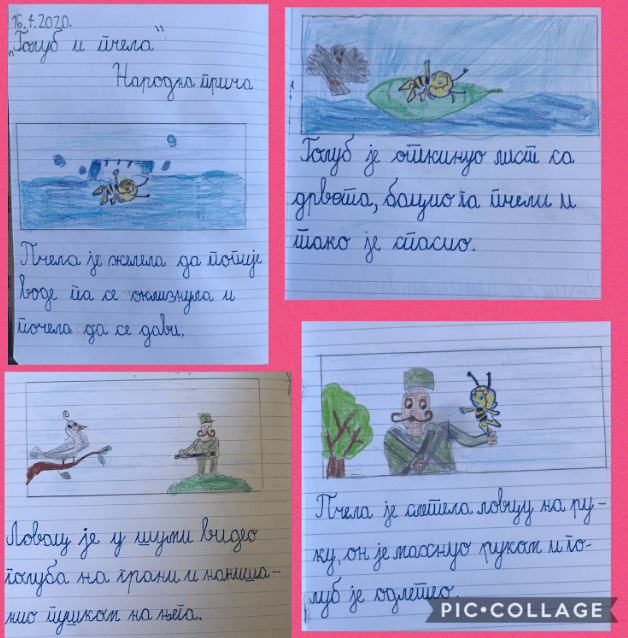 16.4.2020.
„Голуб и пчела“
Народна прича
Пчела је желела да попије
воде па се оклизнула и
почела да се дави.
Голуб је откинуо лист са
дрвета, бацио га пчели и
тако је спасио.
Ловац је у шуми видео
голуба на грани и нанишa-
нио пушком на њега.
Пчела је слетела ловцу на ру-
ку, он је махнуо руком и го-
луб је одлетео.
PIC•COLLAGE